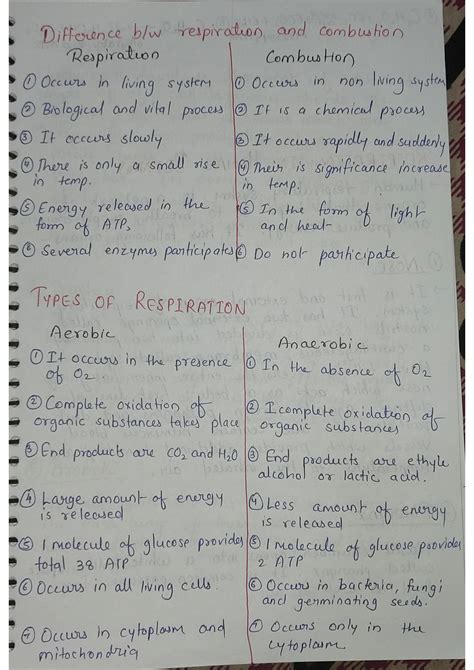 Difference b/w respiration and combustion
Respiration
① Occurs in living system
② Biological and vital process
③ It occurs slowly
④ There is only a small rise
in temp.
⑤ Energy released in the
form of ATP,
⑥ Several enzymes participates
Combustion
① Occurs in non living system
② It is a chemical process
③ It occurs rapidly and suddenly
④ Their is significance increase
in temp.
⑤ In the form of light
and heat
⑥ Do not participate
TYPES OF RESPIRATION
Aerobic
① It occurs in the presence
of O2
② Complete oxidation of
organic substances takes place
③ End products are CO2 and H2O
④ Large amount of energy
is released
⑤ 1 molecule of glucose provides
total 38 ATP
⑥ Occurs in all living cells.
⑦ Occurs in cytoplasm and
mitochondria
Anaerobic
① In the absence of O2
② Icomplete oxidation of
organic substances
③ End products are ethyle
alcohol or lactic acid.
④ Less amount of energy
is released
⑤ 1 molecule of glucose provides
2 ATP
⑥ Occurs in backria, fungi
and germinating seeds.
⑦ Occurs only in the
cytoplasm